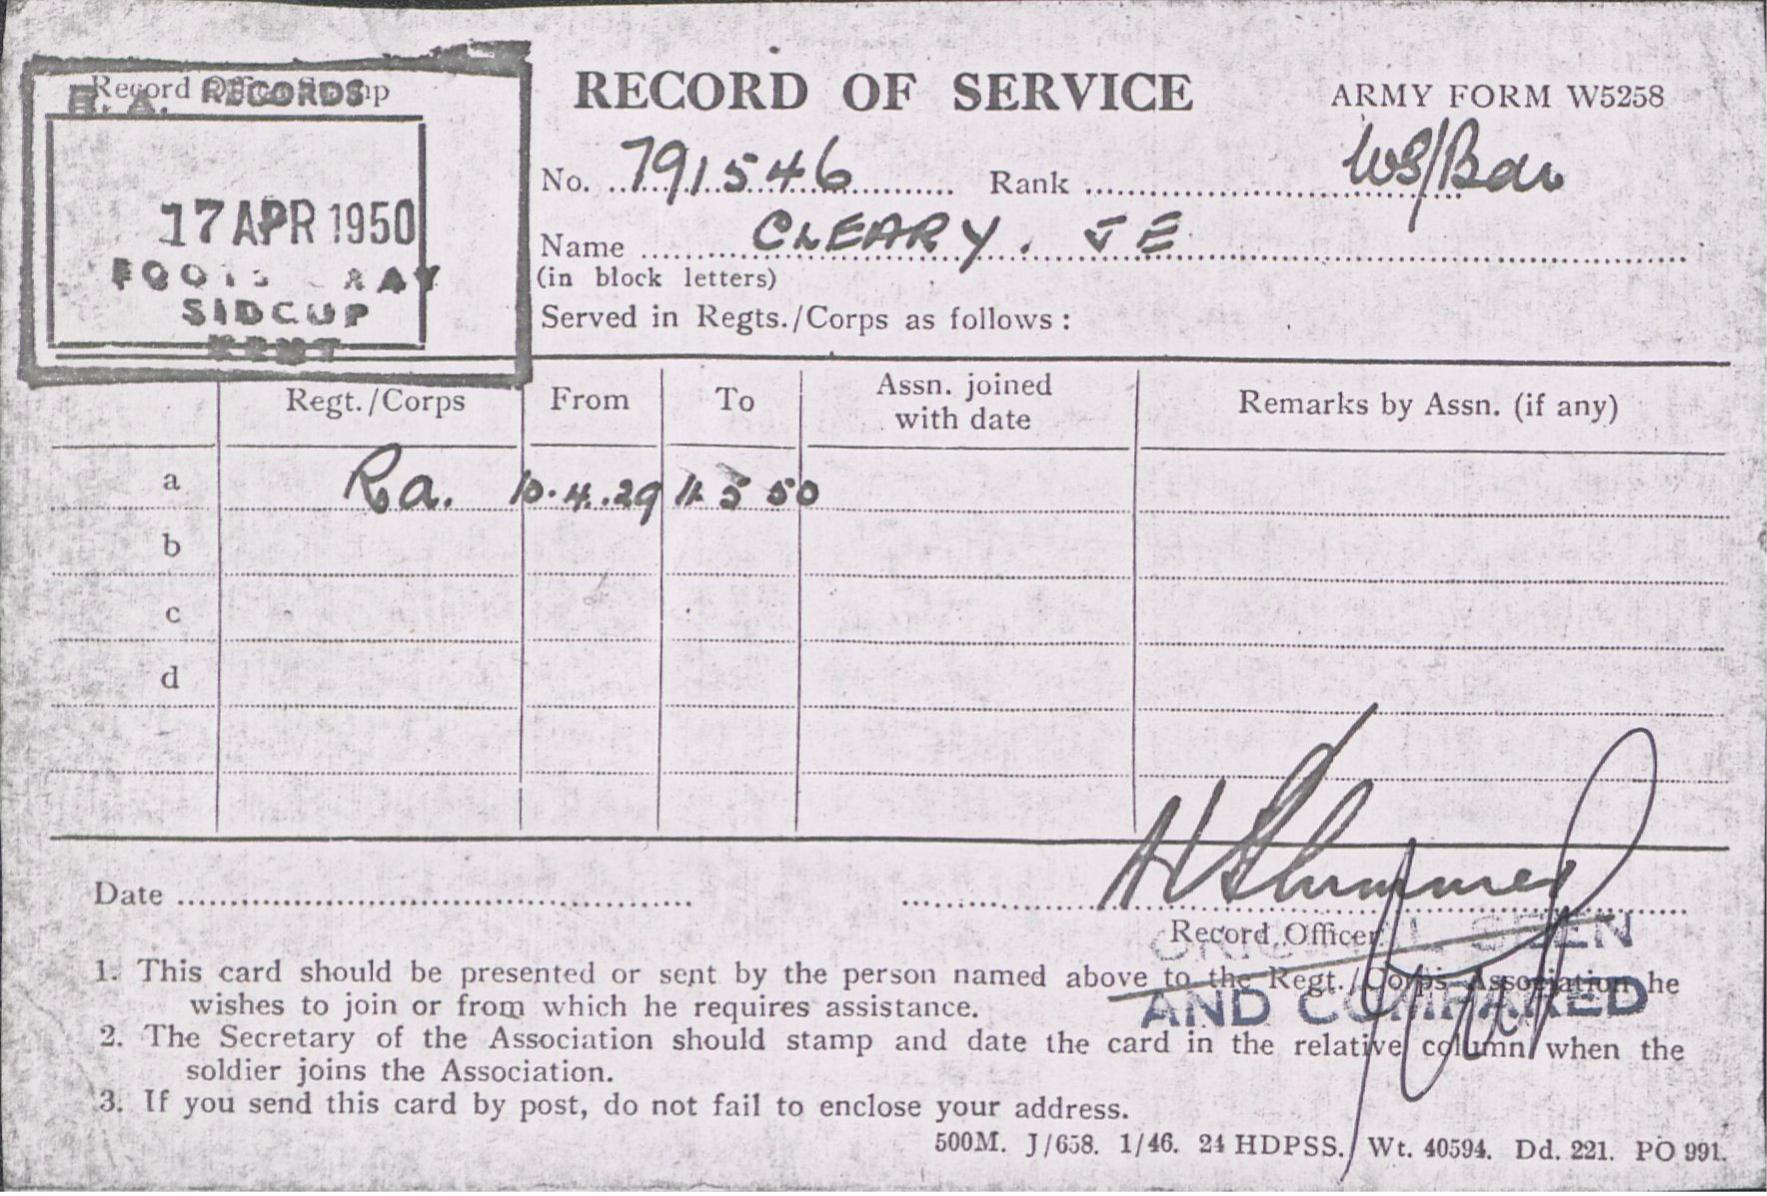 Record Office Stamp
R. A. RECORDS
17 APR 1950
FOOTS CRAY
SIDCUP
KENT
RECORD OF SERVICE
ARMY FORM W5258
No. 791546 Rank WS/Bdr
Name CLEARY. J E
(in block letters)
Served in Regts./Corps as follows :
Regt./Corps From To Assn. joined with date Remarks by Assn. (if any)
a Ra. 10.4.29 11 5 50
b
c
d
Date
Record Officer
ORIGINAL SEEN
AND COMPARED
1. This card should be presented or sent by the person named above to the Regt./Corps Association he
wishes to join or from which he requires assistance.
2. The Secretary of the Association should stamp and date the card in the relative column when the
soldier joins the Association.
3. If you send this card by post, do not fail to enclose your address.
500M. J/658. 1/46. 24 HDPSS. Wt. 40594. Dd. 221. PO 991.